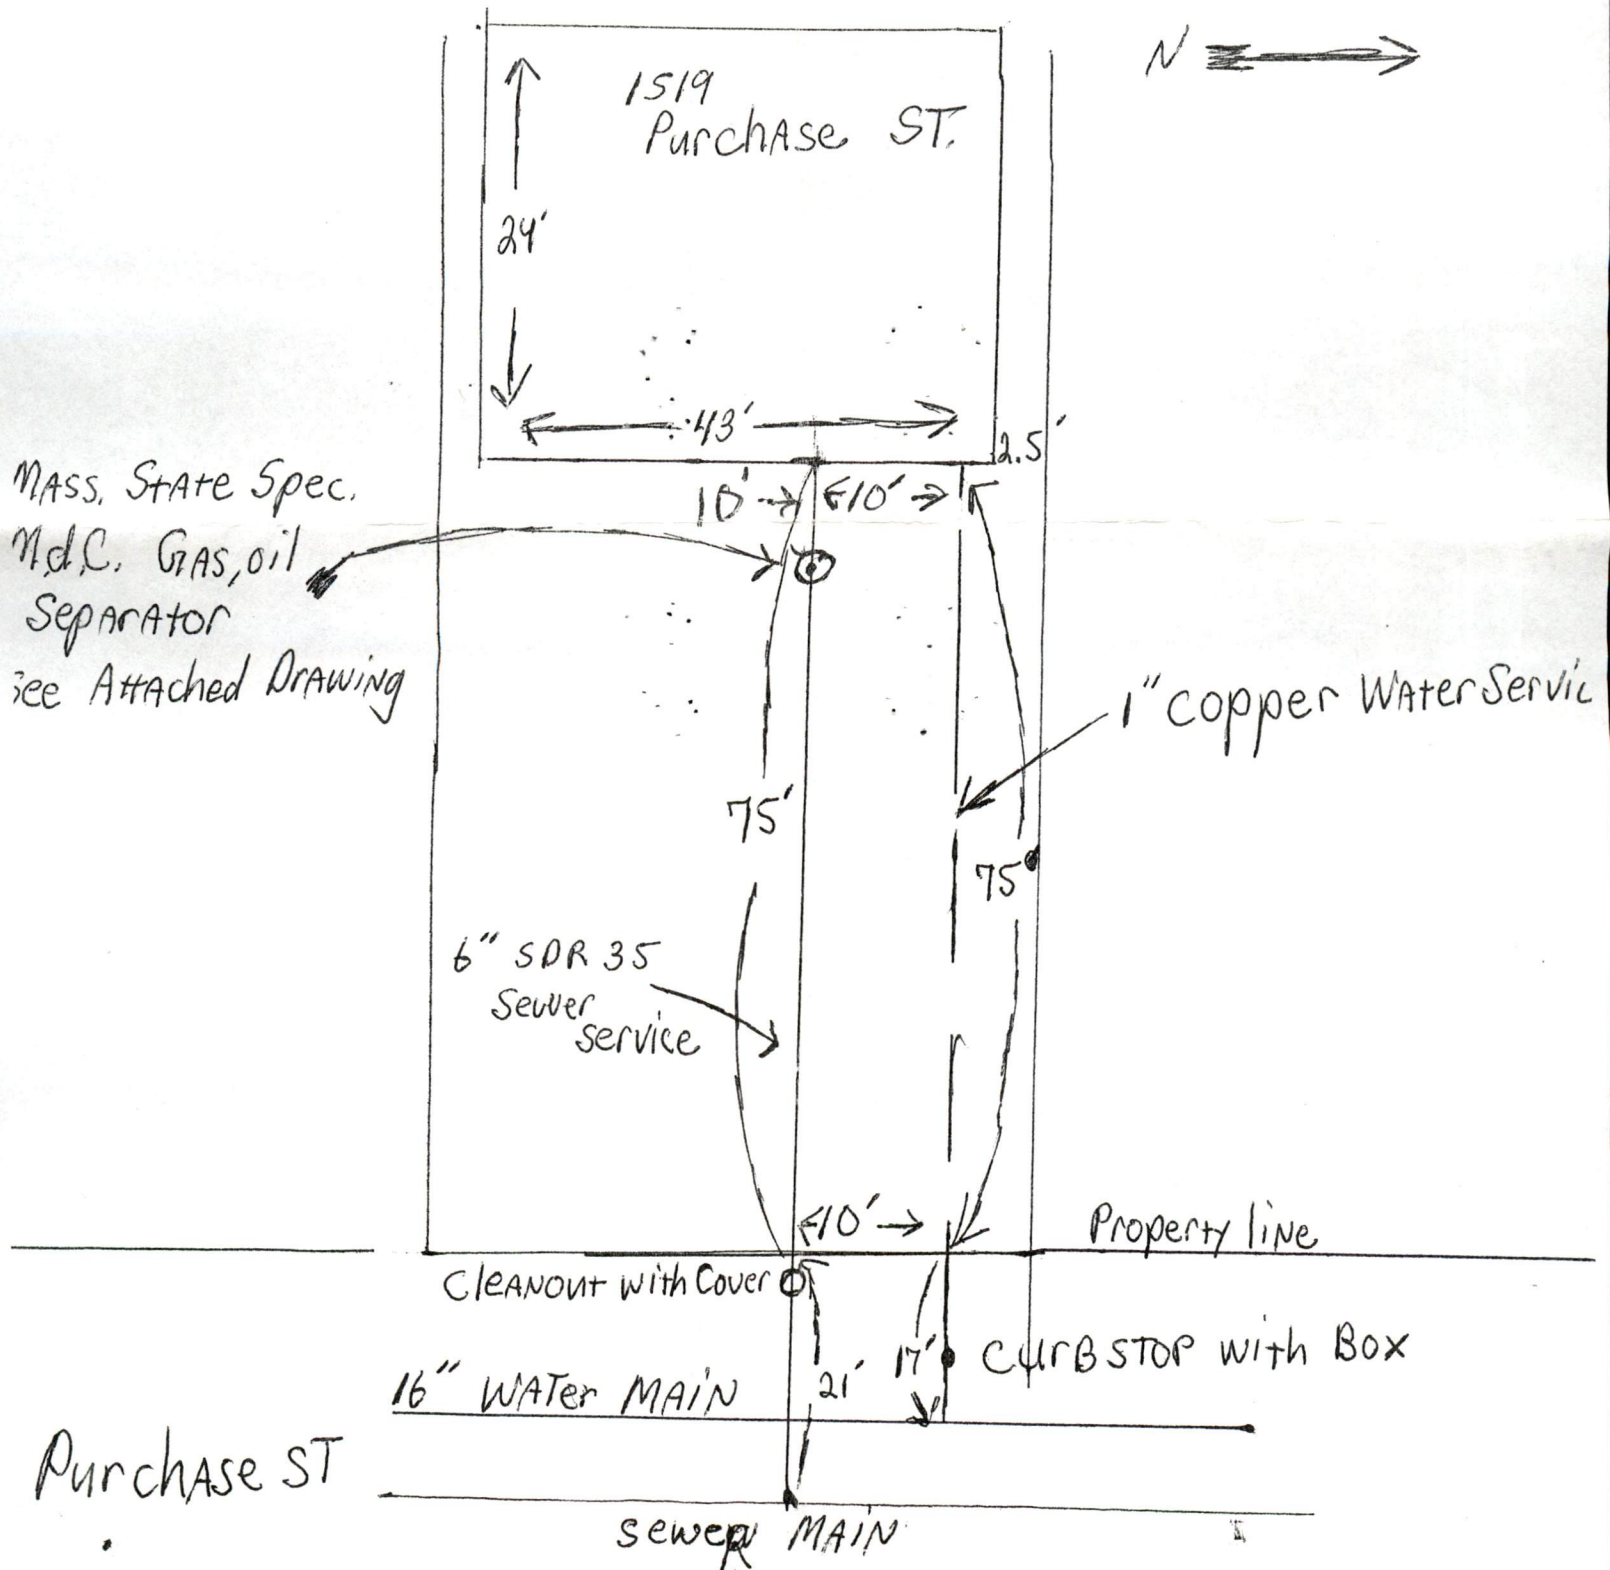 N
1519
Purchase ST.
24'
43'
2.5'
10'
10'
Mass. State Spec.
M.d.C. Gas, oil
Separator
See Attached Drawing
1" copper Water Servic
75'
75'
6" SDR 35
Sewer
service
10'
Property line
Cleanout with Cover
17'
CURB STOP with Box
21'
16" Water Main
Purchase ST
sewer Main